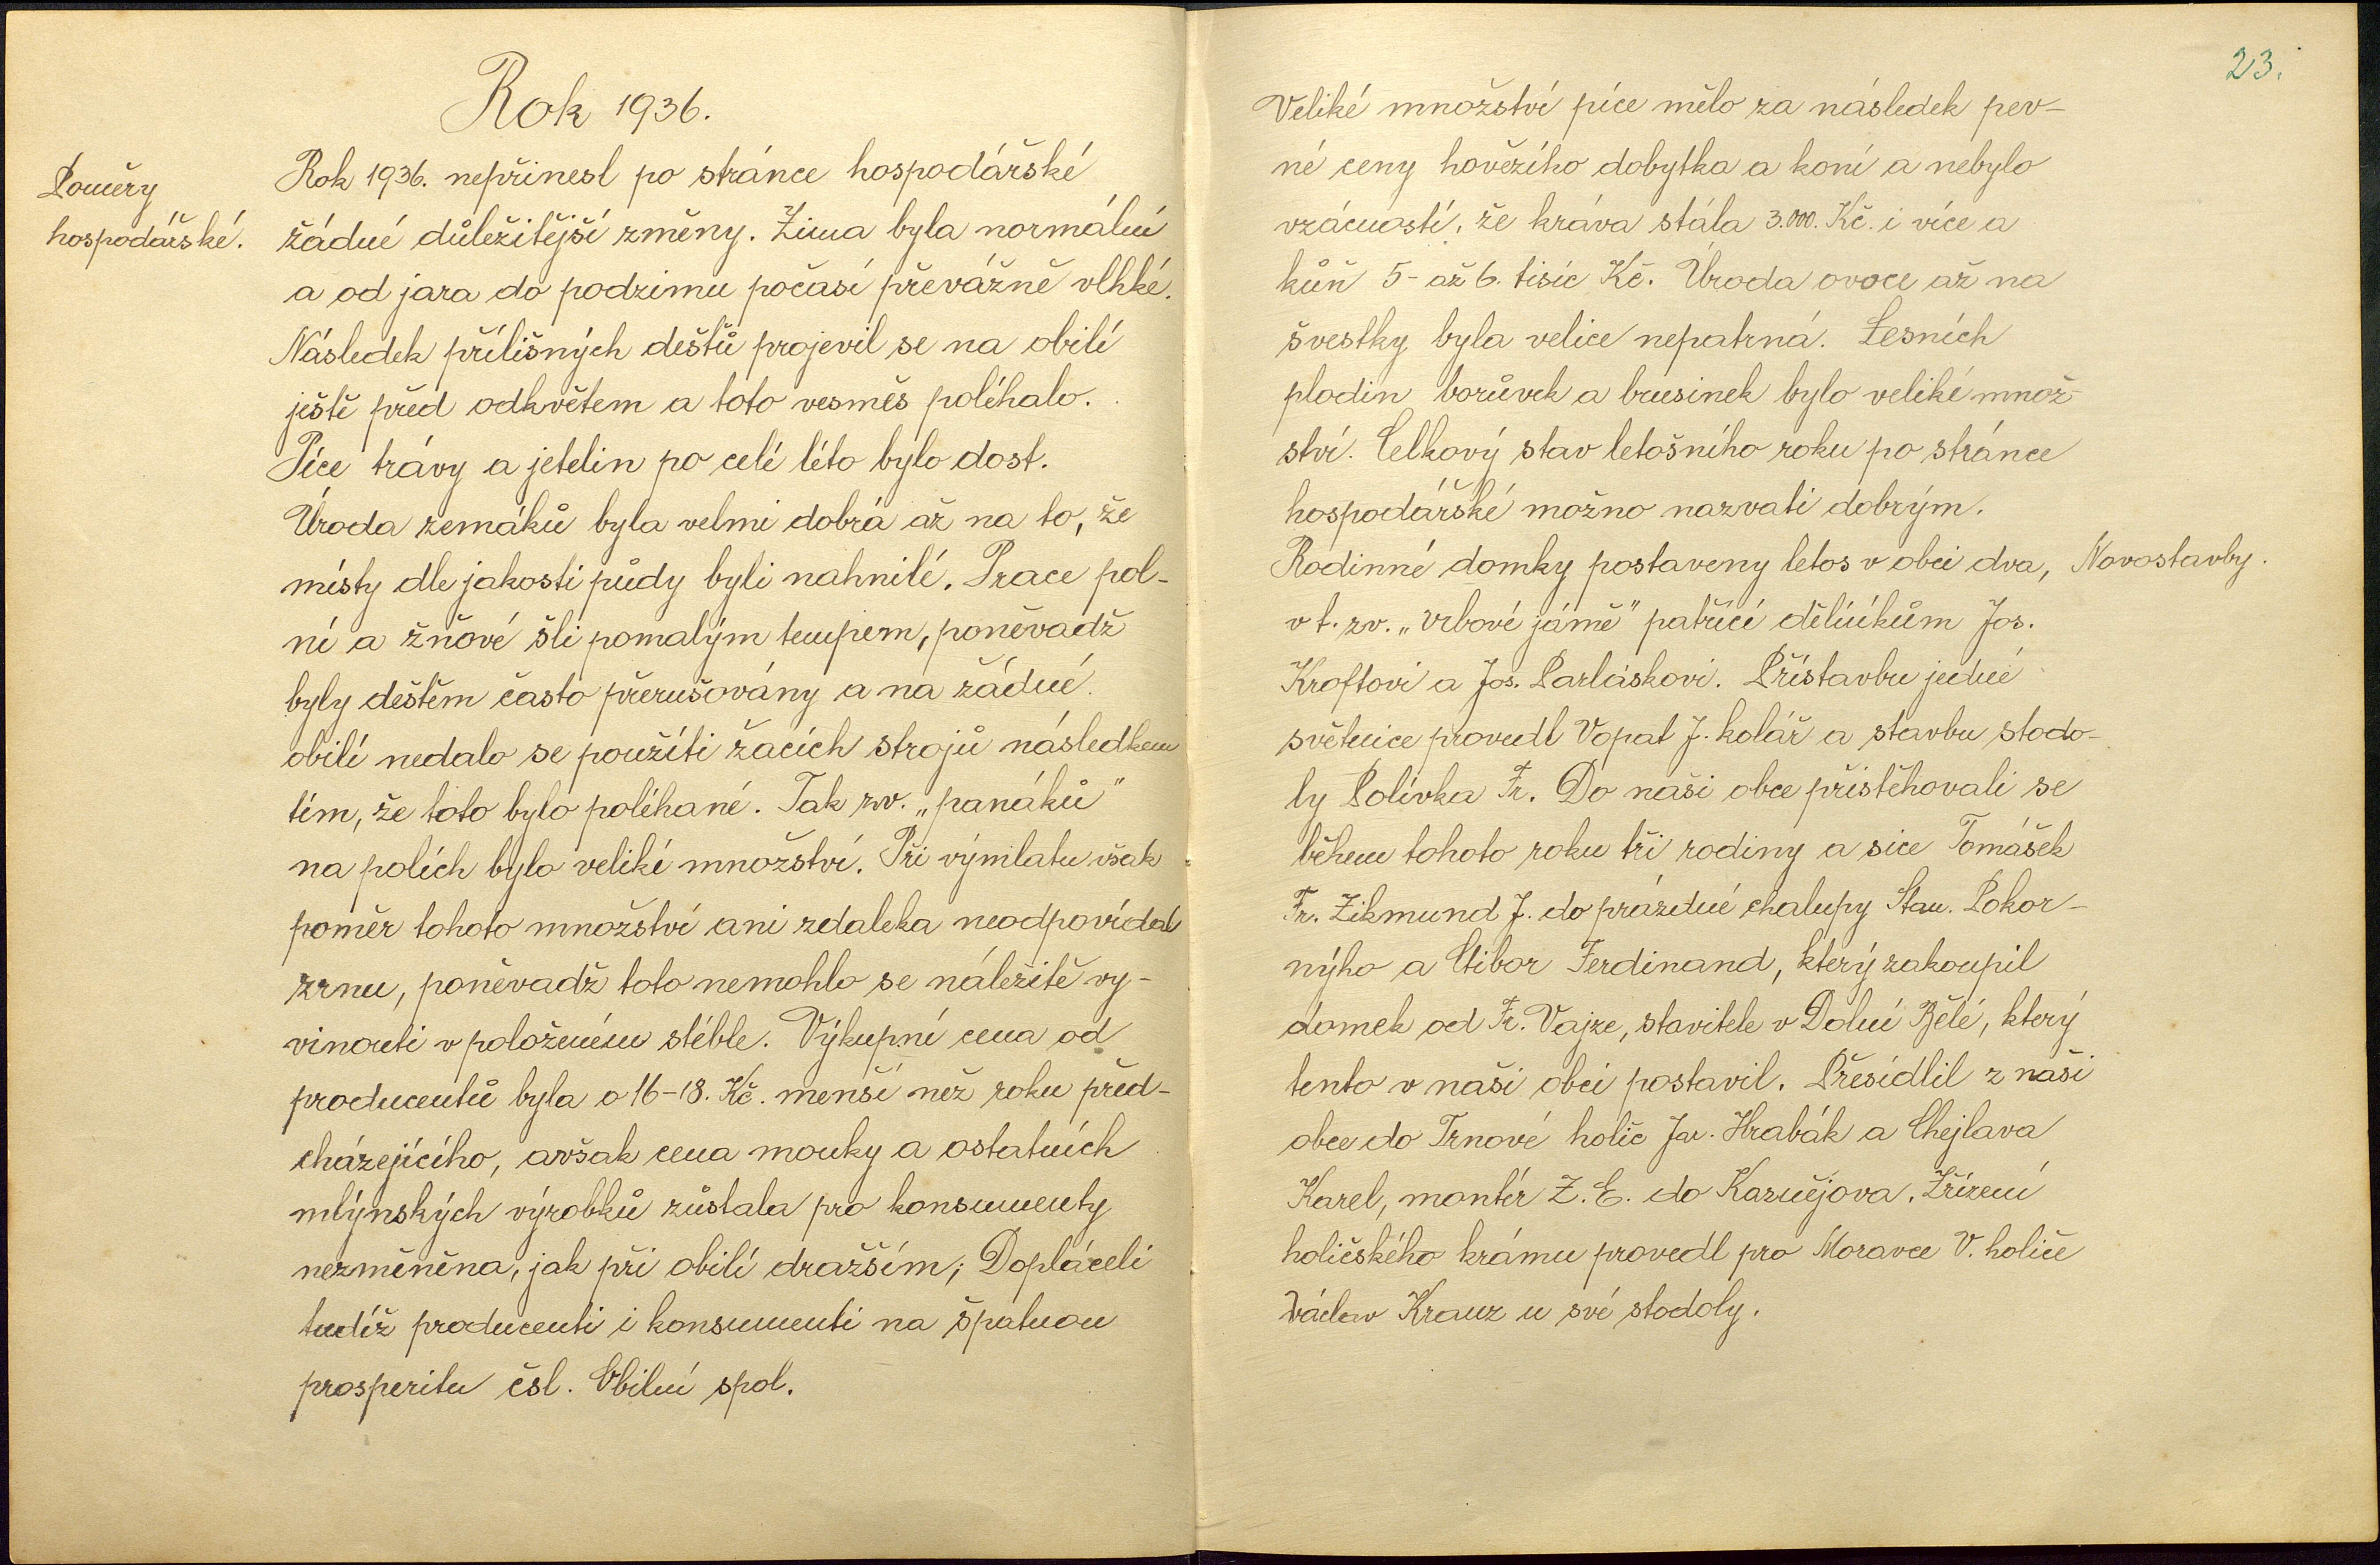 Rok 1936.
Poměry
hospodářské.
Rok 1936. nepřinesl po stránce hospodářské
žádné důležitější změny. Zima byla normální
a od jara do podzimu počasí převážně vlhké.
Následek přílišných dešťů projevil se na obilí
ještě před odkvětem a toto vesměs poléhalo.
Píce trávy a jetelin po celé léto bylo dost.
Úroda zemáků byla velmi dobrá až na to, že
místy dle jakosti půdy byli nahnilé. Prace pol-
ní a žňové šli pomalým tempem, poněvadž
byly deštěm často přerušovány a na žádné
obilí nedalo se použíti žacích strojů následkem
tím, že toto bylo poléhané. Tak zv. „panáků"
na polích bylo veliké množství. Při výmlatu však
poměr tohoto množství ani zdaleka neodpovídal
zrnu, poněvadž toto nemohlo se náležitě vy-
vinouti v položeném stéble. Výkupní cena od
producentů byla o 16-18. Kč. menší než roku před-
cházejícího, avšak cena mouky a ostatních
mlýnských výrobků zůstala pro konsumenty
nezměněna, jak při obilí dražším; Dopláceli
tudíž producenti i konsumenti na špatnou
prosperitu čsl. Obilní spol.
23.
Veliké množství píce mělo za následek pev-
né ceny hovězího dobytka a koní a nebylo
vzácností, že kráva stála 3.000. Kč. i více a
kůň 5- až 6. tisíc Kč. Úroda ovoce až na
švestky byla velice nepatrná. Lesních
plodin borůvek a brusinek bylo veliké množ-
ství. Celkový stav letošního roku po stránce
hospodářské možno nazvati dobrým.
Rodinné domky postaveny letos v obci dva,
Novostavby.
v t. zv. „Vrbové jámě" patřící dělníkům Jos.
Kroftovi a Jos. Parláskovi. Přístavbu jedné
světnice provedl Vopat J. kolář a stavbu stodo-
ly Polívka Fr. Do naši obce přistěhovali se
během tohoto roku tři rodiny a sice Tomášek
Fr. Zikmund J. do prázdné chalupy Stan. Pokor-
nýho a Ctibor Ferdinand, který zakoupil
domek od Fr. Vajze, stavitele v Dolní Bělé, který
tento v naši obci postavil. Přesídlil z naši
obce do Trnové holič Jar. Hrabák a Chejlava
Karel, montér Z. E. do Kaznějova. Zřízení
holičského krámu provedl pro Moravce V. holiče
Václav Krauz u své stodoly.